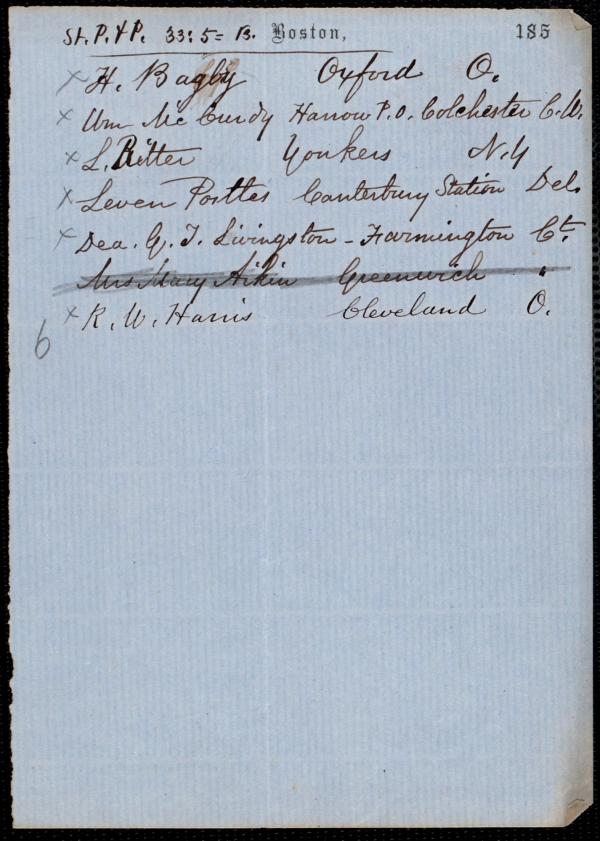 St. P. & P. 33: 5 = B. Boston, 185
x H. Bagby Oxford O.
x Wm McCurdy Harrow P.O. Colchester C.W.
x L. Ritter Yonkers N.Y
x Leven Canterbury Station Del.
x Dea. G. T. Livingston - Farmington Ct.
Mrs Mary Aikin Greenwich "
x R. W. Harris Cleveland O.
6